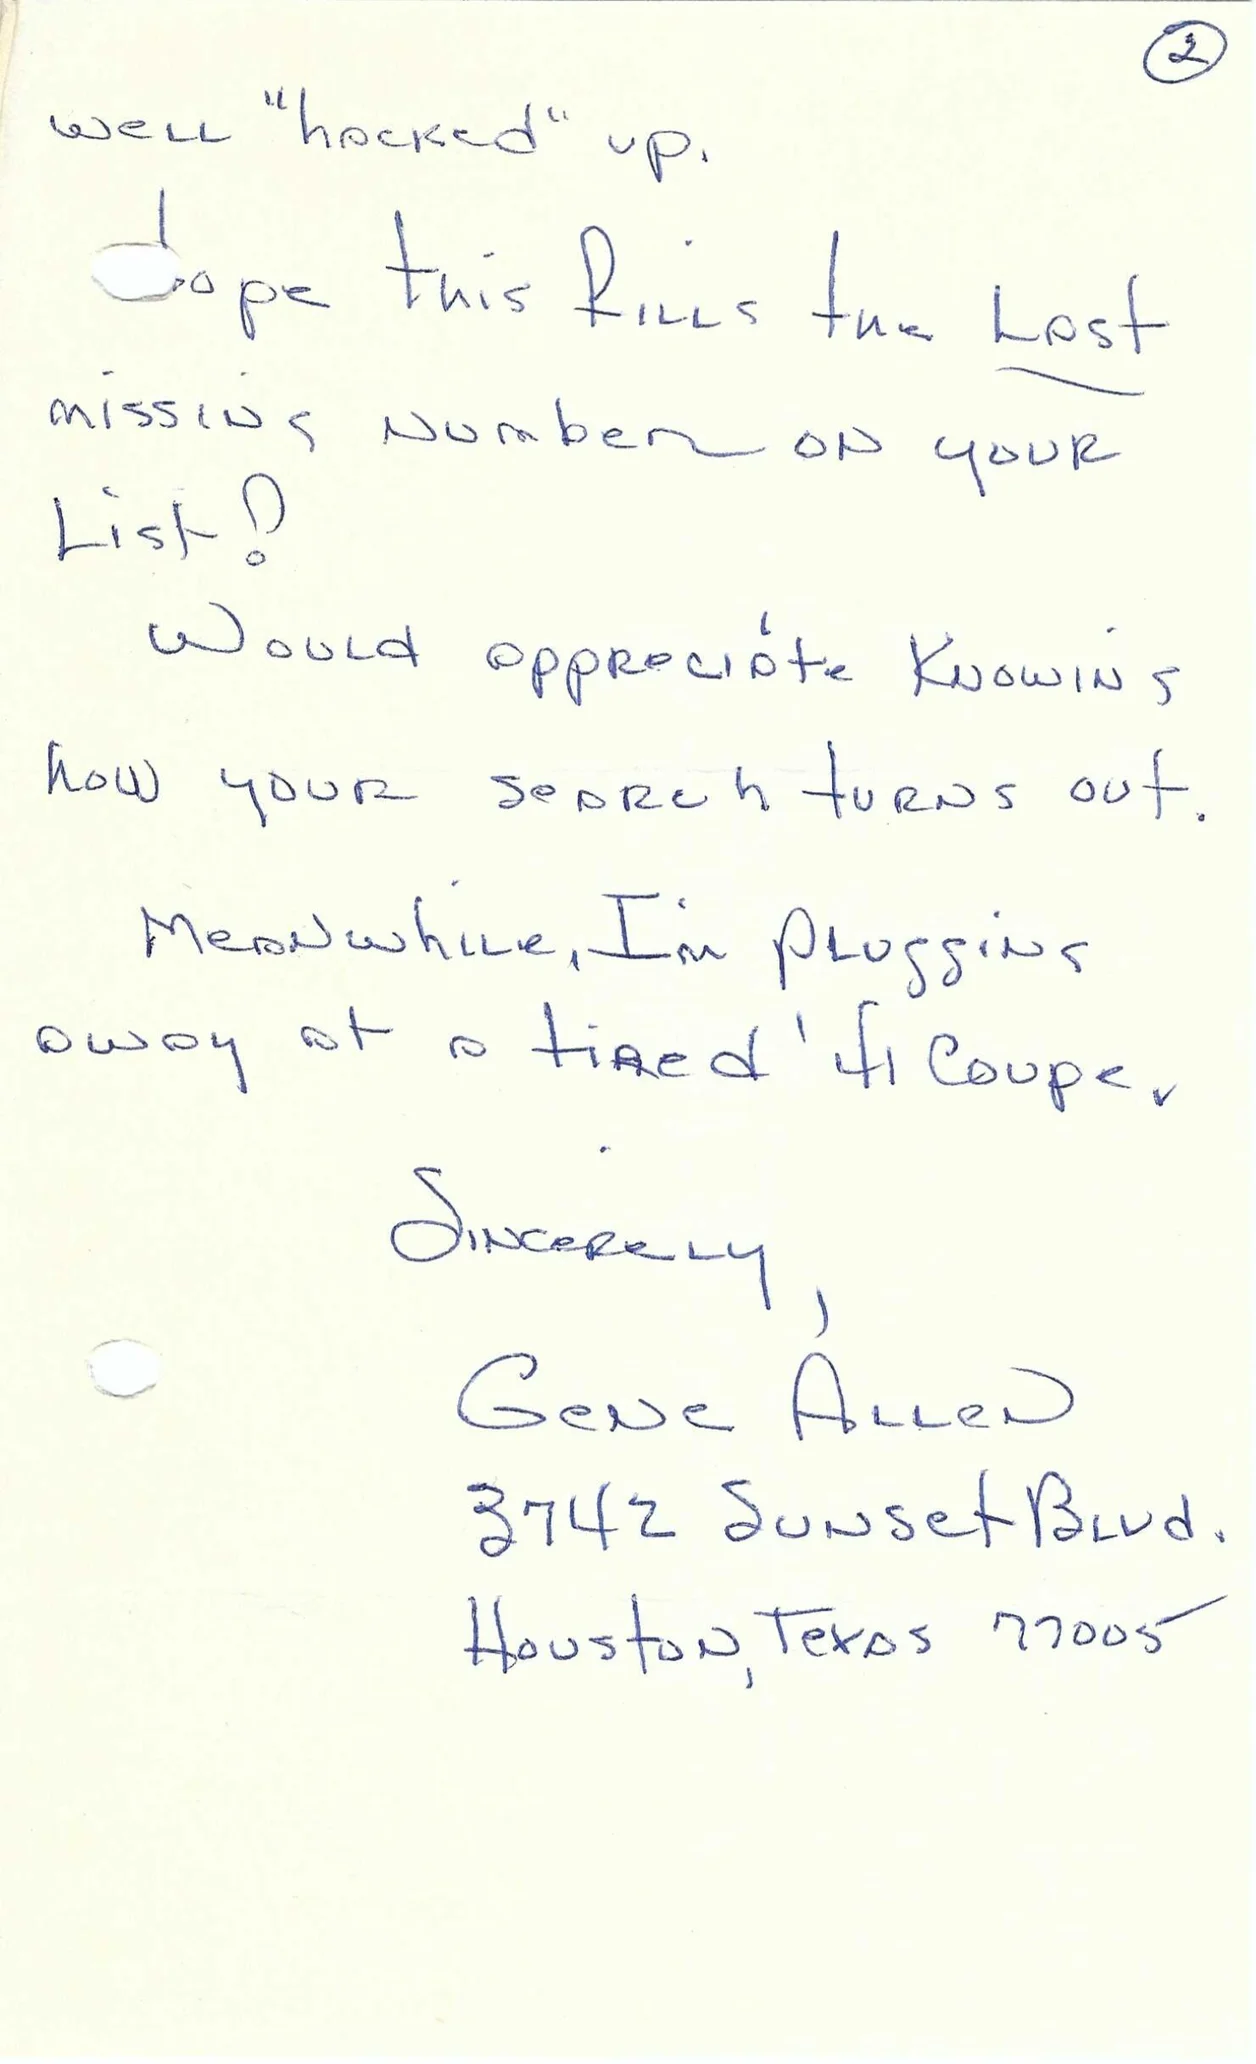 2
well "hacked" up.
Hope this fills the Last
missing number on your
List!
Would appreciate knowing
how your search turns out.
Meanwhile, I'm plugging
away at a tired '41 Coupe.
Sincerely,
Gene Allen
3742 Sunset Blvd.
Houston, Texas 77005